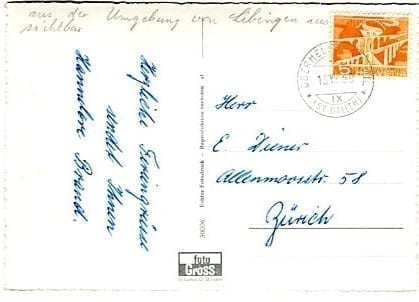 aus der Umgebung von Libingen aus
sichtbar
Herzliche Feriengrüsse
sendet Ihnen
Hannelore Brand.
Echter Fotodruck - Reproduktion verboten
30006
foto
Gross
5
HELVETIA
(ST. GALLEN)
Herr
E. Diener
Allenmoosstr. 58
Zürich